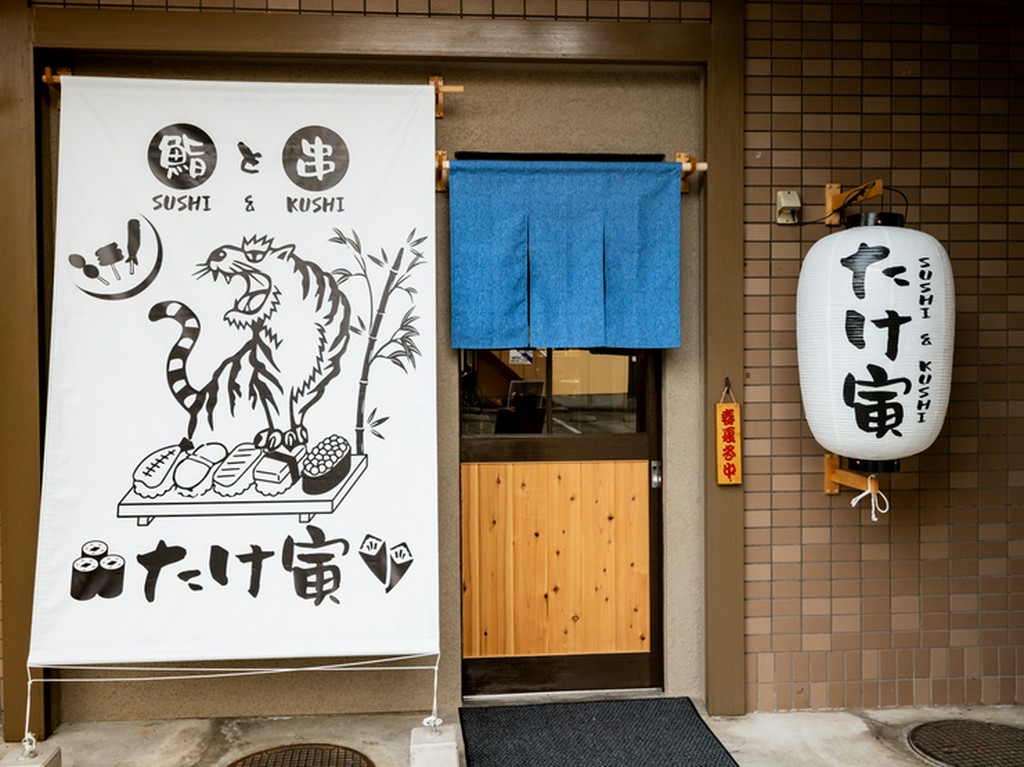 鮨と串
SUSHI & KUSHI
たけ寅
春夏冬中
たけ寅
SUSHI & KUSHI